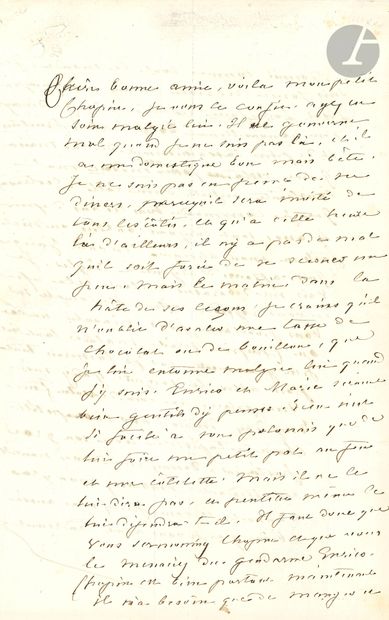 Chère bonne amie, voila mon petit
Chopin, je vous le confie. ayez en
soin malgré lui. Il se gouverne
mal quand je ne suis pas là, et il
a un domestique bon mais bête.
Je ne suis pas en peine de ses
diners, parcequ'il sera invité de
tous les côtés, et qu'à cette heure
là d'ailleurs, il n'y a pas de mal
qu'il soit forcé de se secouer un
peu. mais le matin, dans la
hâte de ses leçons, je crains qu'il
n'oublie d'avaler une tasse de
chocolat ou de bouillon, que
je lui entonne malgré lui quand
j'y suis. Enrico et Marie seraient
bien gentils d'y penser. Rien n'est
si facile à son polonais que de
lui faire un petit pot au feu
et une côtelette. mais il ne le
lui dira pas, et peutêtre même le
lui défendra-t-il. Il faut donc que
vous sermoniez Chopin et que vous
le menaciez du gendarme Enrico.
Chopin est bien portant maintenant
il n'a besoin que de manger et